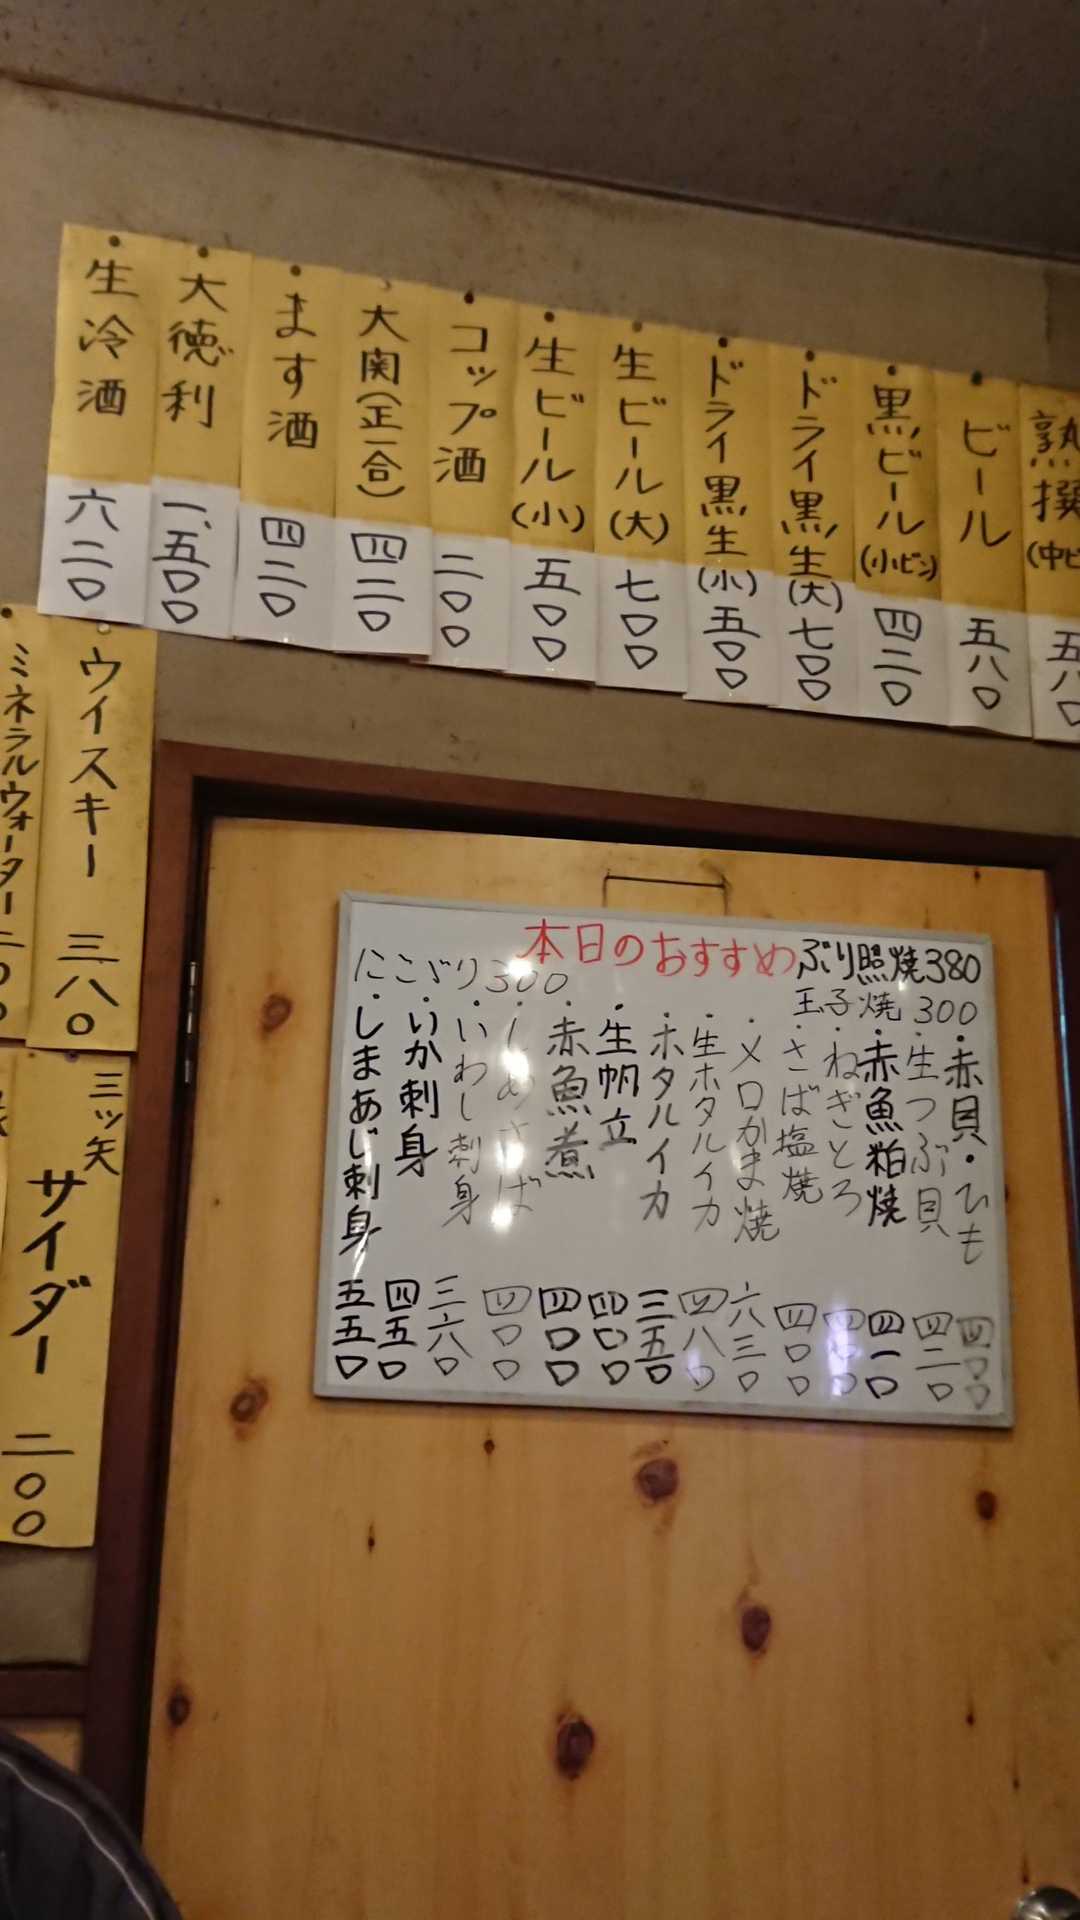 熟撰(中ビ 五八〇
ビール 五八〇
黒ビール(小ビン) 四二〇
ドライ黒生(大) 七〇〇
ドライ黒生(小) 五〇〇
生ビール(大) 七〇〇
生ビール(小) 五〇〇
コップ酒 二〇〇
大関(正一合) 四二〇
ます酒 四二〇
大徳利 一、五〇〇
生冷酒 六二〇
ウイスキー 三八〇
ミネラルウォーター 二〇〇
三ツ矢サイダー 二〇〇
本日のおすすめ
ぶり照焼380
玉子焼300
にこごり300
・赤貝・ひも 四〇〇
・生つぶ貝 四二〇
・赤魚粕焼 四一〇
・ねぎとろ 四〇〇
・さば塩焼 四〇〇
・メロかま焼 六三〇
・生ホタルイカ 四八〇
・ホタルイカ 三五〇
・生帆立 四〇〇
・赤魚煮 四〇〇
・しめさば 四〇〇
・いわし刺身 三六〇
・いか刺身 四五〇
・しまあじ刺身 五五〇